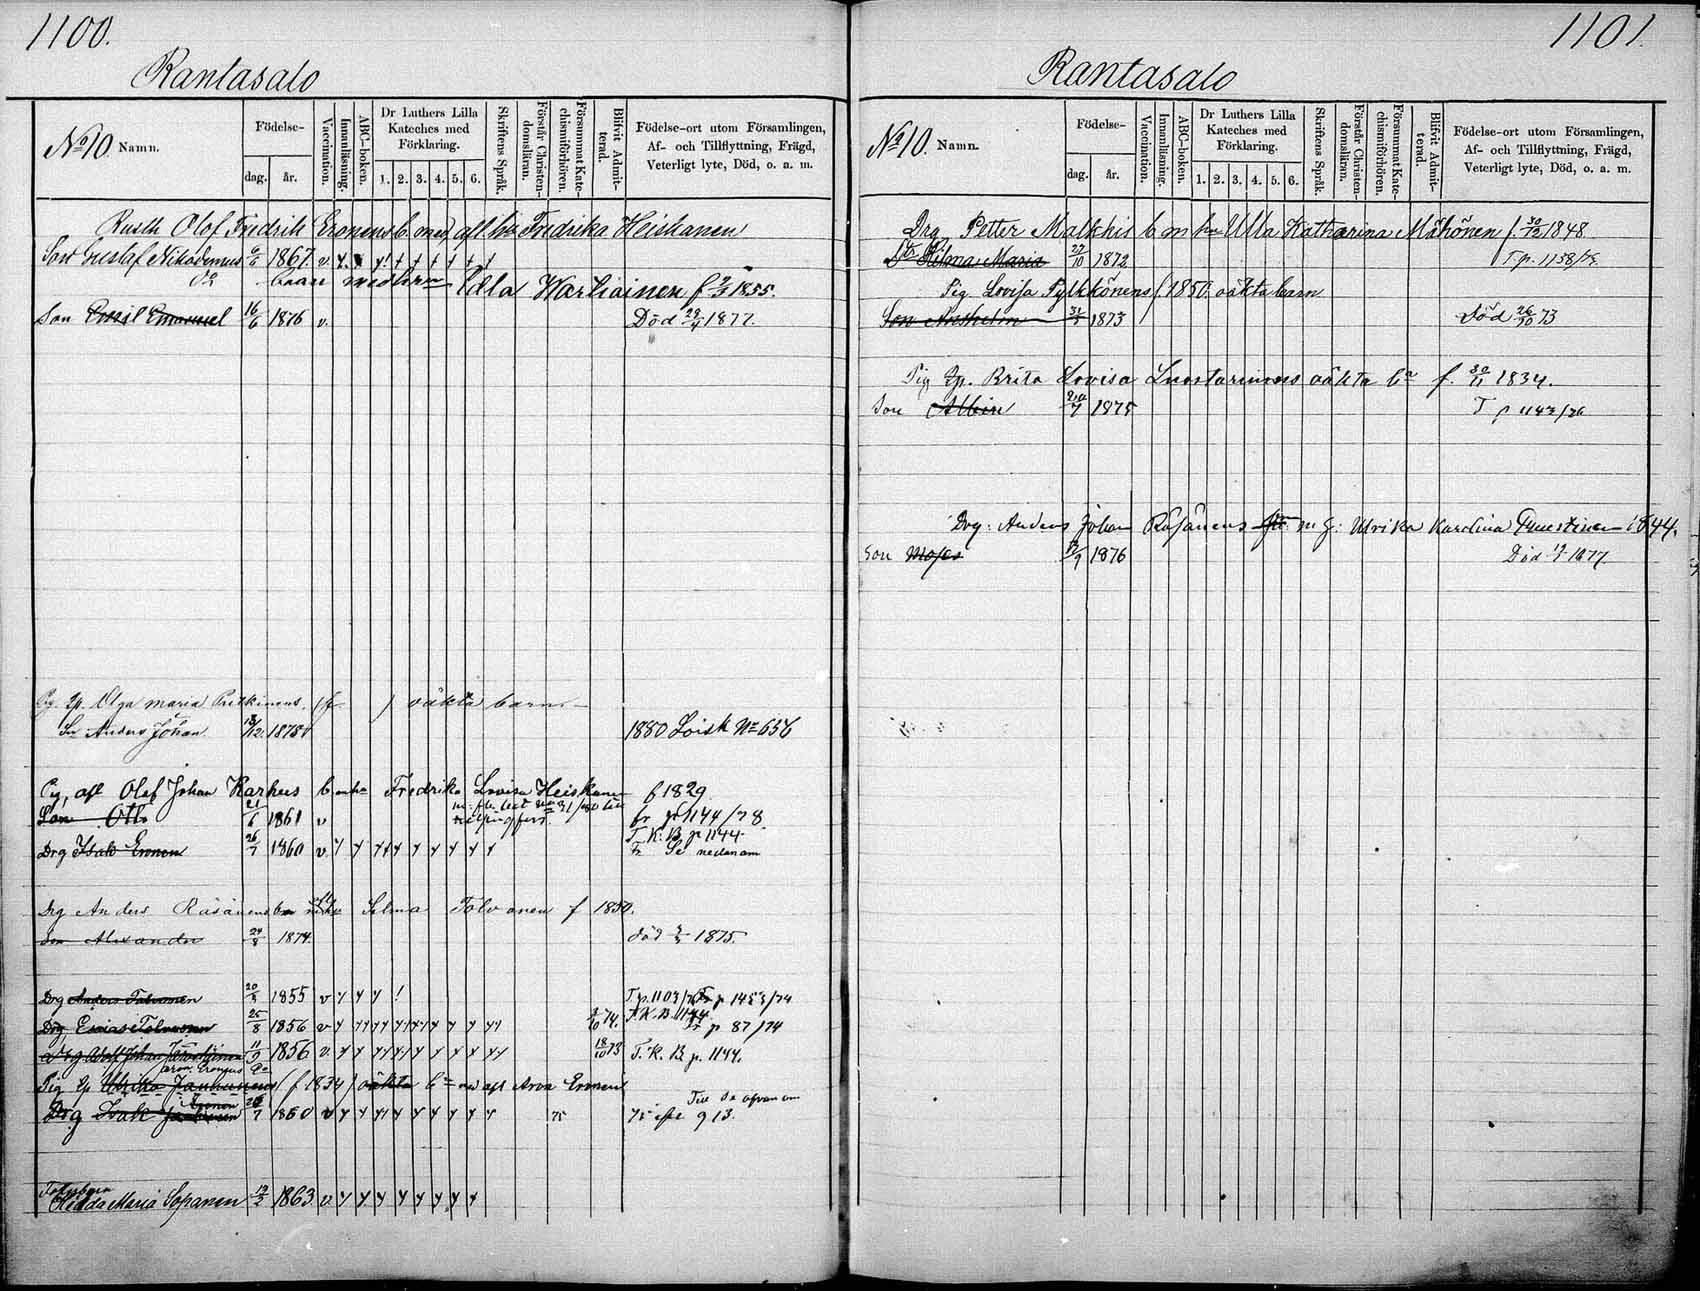 1100.
Rantasalo
No 10. Namn.
Födelse-
dag. år.
Vaccination.
Innanläsning.
ABC-boken.
Dr Luthers Lilla Kateches med Förklaring.
1. 2. 3. 4. 5. 6.
Skriftens Språk.
Förstår Christendomsläran.
Försummat Katechismiförhören.
Blifvit Admitterad.
Födelse-ort utom Församlingen,
Af- och Tillflyttning, Frägd,
Veterligt lyte, Död, o. a. m.
Rusth Olof Fredrik Eronens b. med afl hu Fredrika Heiskanen
Son Gustaf Nikodemus 6/6 1867. v.
Do barn med hrn Edla Wartiainen f 2/3 1855.
Son Emil Emanuel 16/6 1876 v. Död 28/4 1877.
Pig. Olga Maria barn
Sn Anders Johan 13/12 1878 1880 Loisk No 656
afl Olof Johan Karhus b m hu Fredrika Lovisa Heiskanen f 1829
Son Otto 21/6 1861 v fr p 1144/78.
T. K. B. p 1144
Drg Isak Eronen 26/7 1860 v Se nedanom
Drg Anders Räsänens Selma Tolvanen f 1850.
Son Alexander 24/8 1874. död 1875.
Drg Anders Tolvanen 20/3 1855 v T. p. 1103/76 Fr p 1453/74
Drg Esaias Tolvanen 25/8 1856 v 74. T. K. B. 1144 Fr p 87/74
Drg Adolf Johan 11/9 1856 v. 18/10 73 T. K. B. p. 1144.
Pig Ulrika Janhunens (f 1834) oäkta b med afl Aron Eronen
Drg Isak Eronen 26/7 1860 v 75 75 efter 913.
Till Se ofvanom
Fosterbarn
Hedda Maria Sopanen 12/2 1863 v.
1101.
Rantasalo
No 10. Namn.
Födelse-
dag. år.
Vaccination.
Innanläsning.
ABC-boken.
Dr Luthers Lilla Kateches med Förklaring.
1. 2. 3. 4. 5. 6.
Skriftens Språk.
Förstår Christendomsläran.
Försummat Katechismiförhören.
Blifvit Admitterad.
Födelse-ort utom Församlingen,
Af- och Tillflyttning, Frägd,
Veterligt lyte, Död, o. a. m.
Drg Petter Malkkis b m hu Ulla Katharina Mähönen f. 30/12 1848
Dr Hilma Maria 27/10 1872 T. p. 1158/75.
Pig. Lovisa Pylkkönens f. 1850. oäkta barn
Son Anshelm 31/3 1873 Död 26/10 73
Pig Ep. Brita Lovisa oäkta bn f. 30/11 1834.
Son Albin 20/7 1875 T p 1143/76
Drg: Anders Johan Räsänens m g: Ulrika Karolina 1844.
Son Moses 1876 Död 1877.